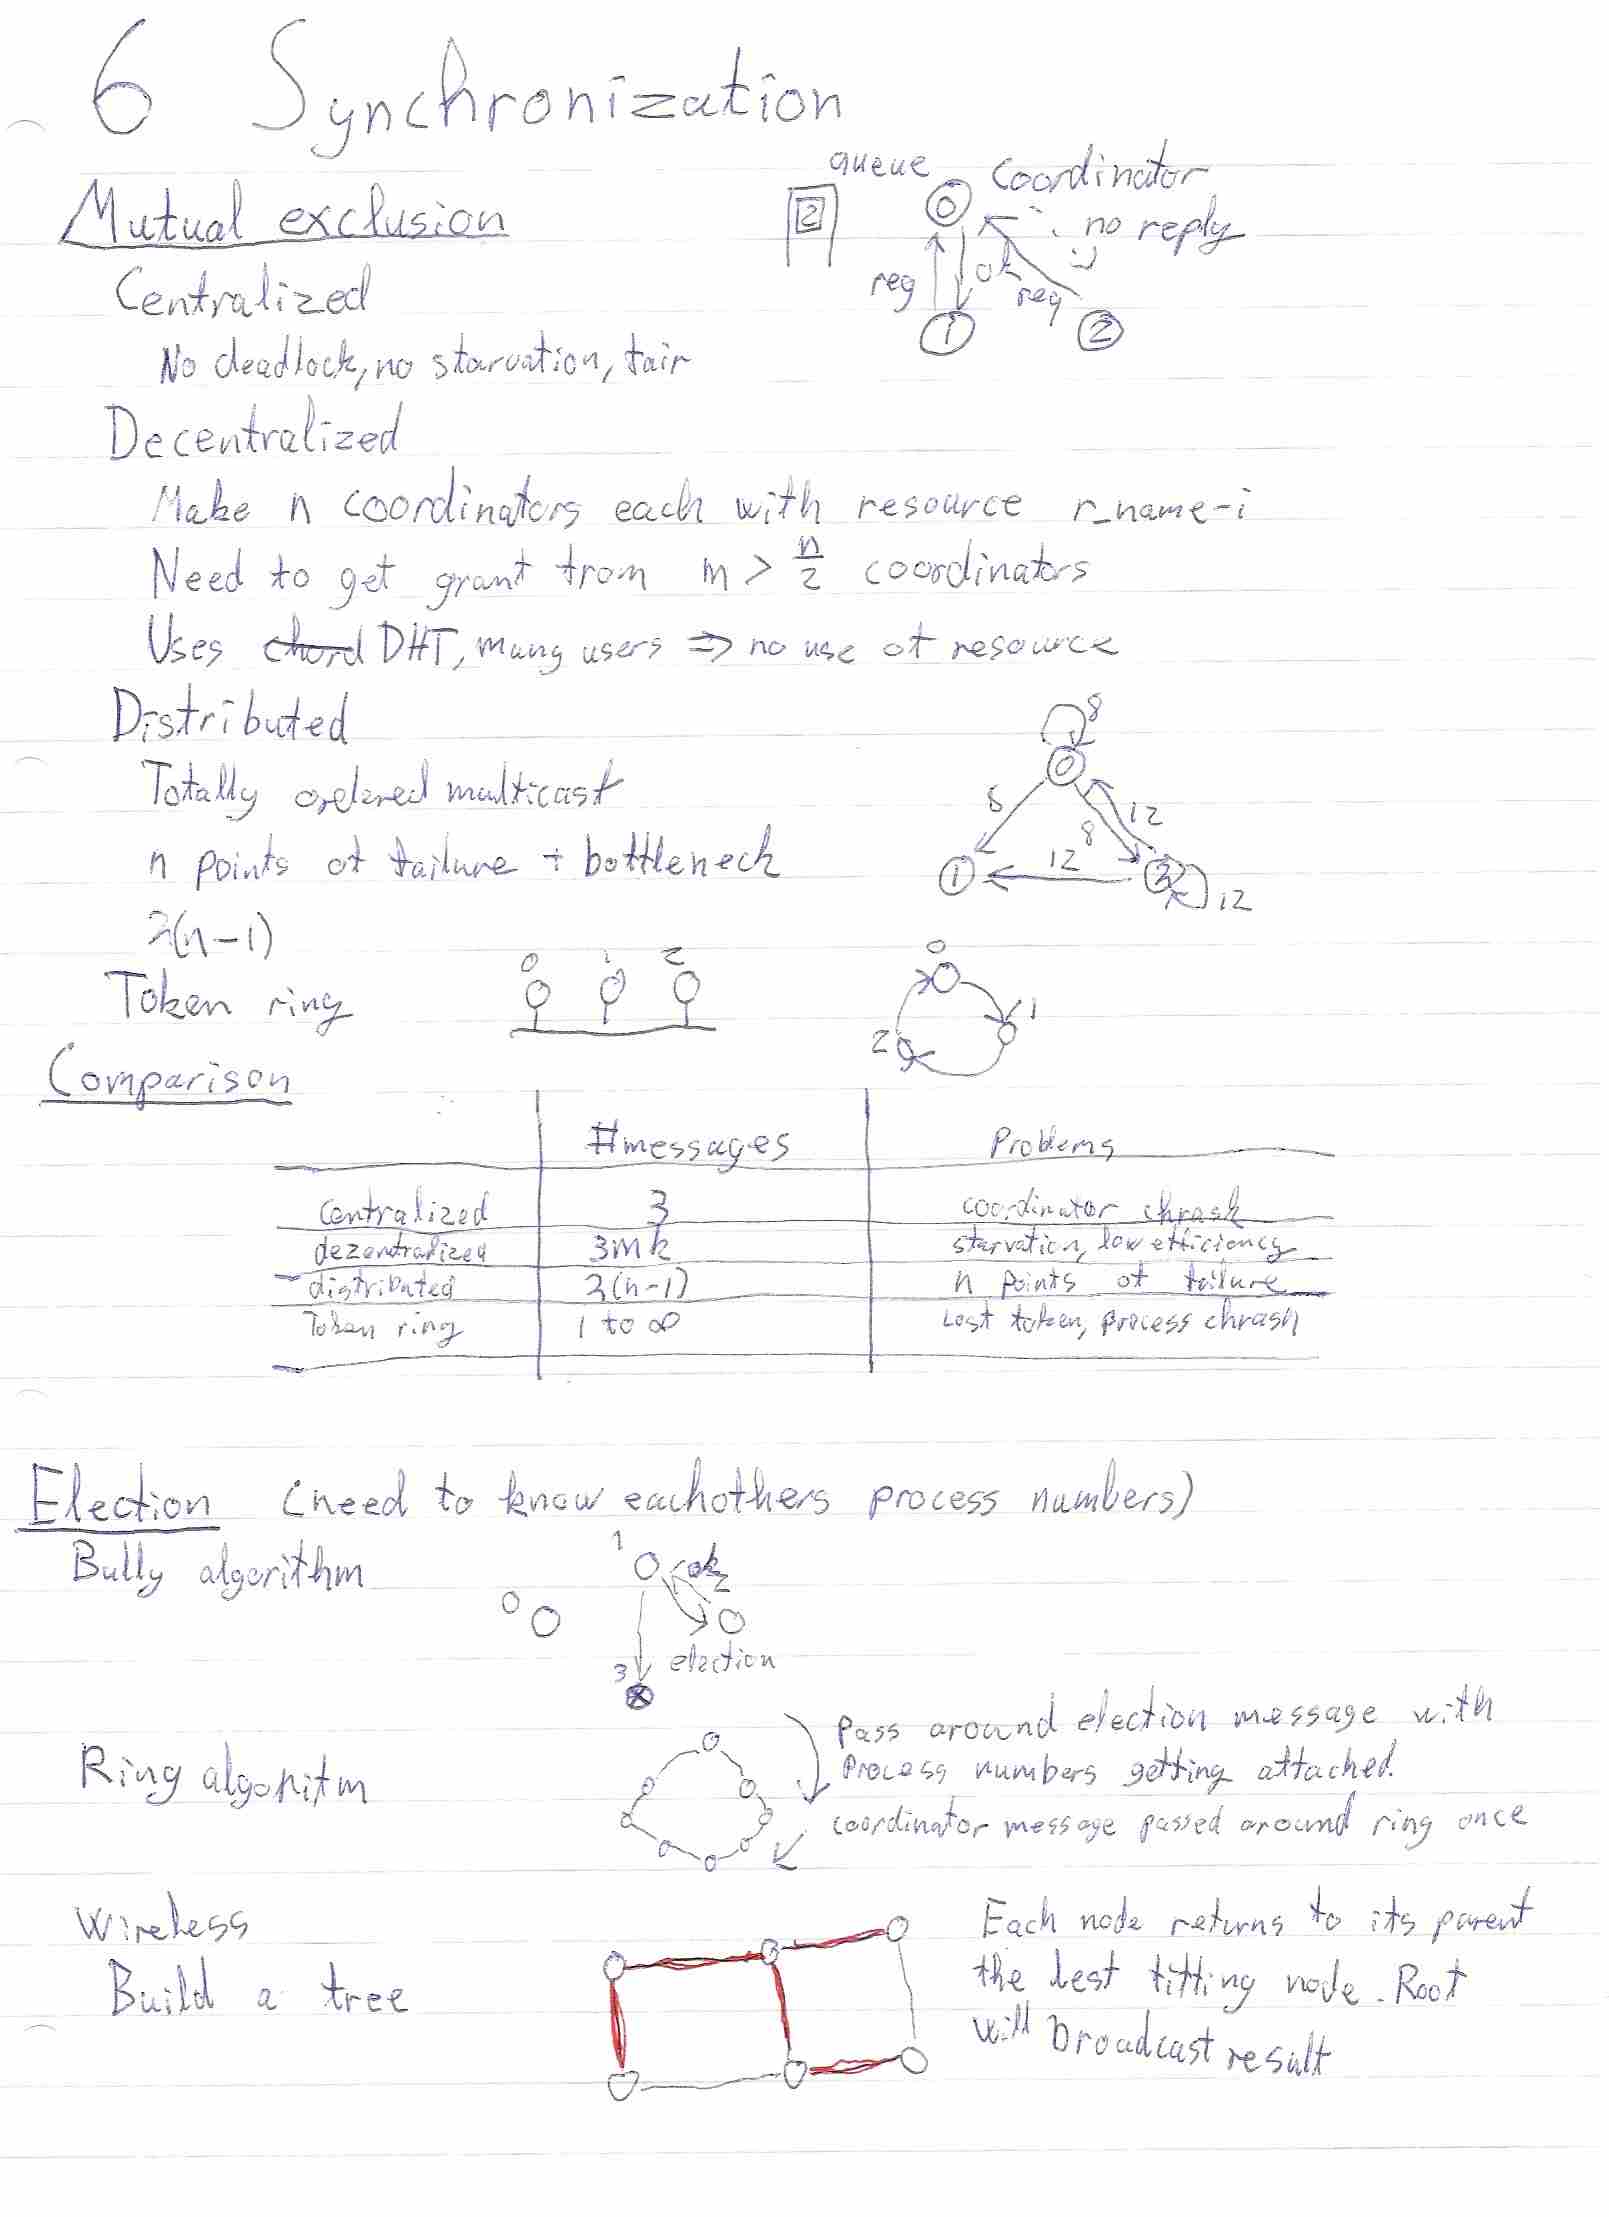 6 Synchronization
Mutual exclusion
queue
Coordinator
2
0
no reply
req
ok
req
1
2
Centralized
No deadlock, no starvation, fair
Decentralized
Make n coordinators each with resource r_name-i
Need to get grant from m > n/2 coordinators
Uses chord DHT, many users ⇒ no use of resource
Distributed
8
0
Totally ordered multicast
8
8
12
n points of failure + bottleneck
1
12
2
12
2(n-1)
Token ring
0 1 2
0
1
2
Comparison
#messages Problems
centralized 3 coordinator chrash
dezentralized 3mk starvation, low efficiency
distributed 2(n-1) n points of failure
Token ring 1 to ∞ Lost token, process chrash
Election (need to know eachothers process numbers)
Bully algorithm
1
ok
2
0
election
3
Ring algoritm
Pass around election message with
process numbers getting attached.
coordinator message passed around ring once
Wireless
Build a tree
Each node returns to its parent
the best fitting node. Root
will broadcast result